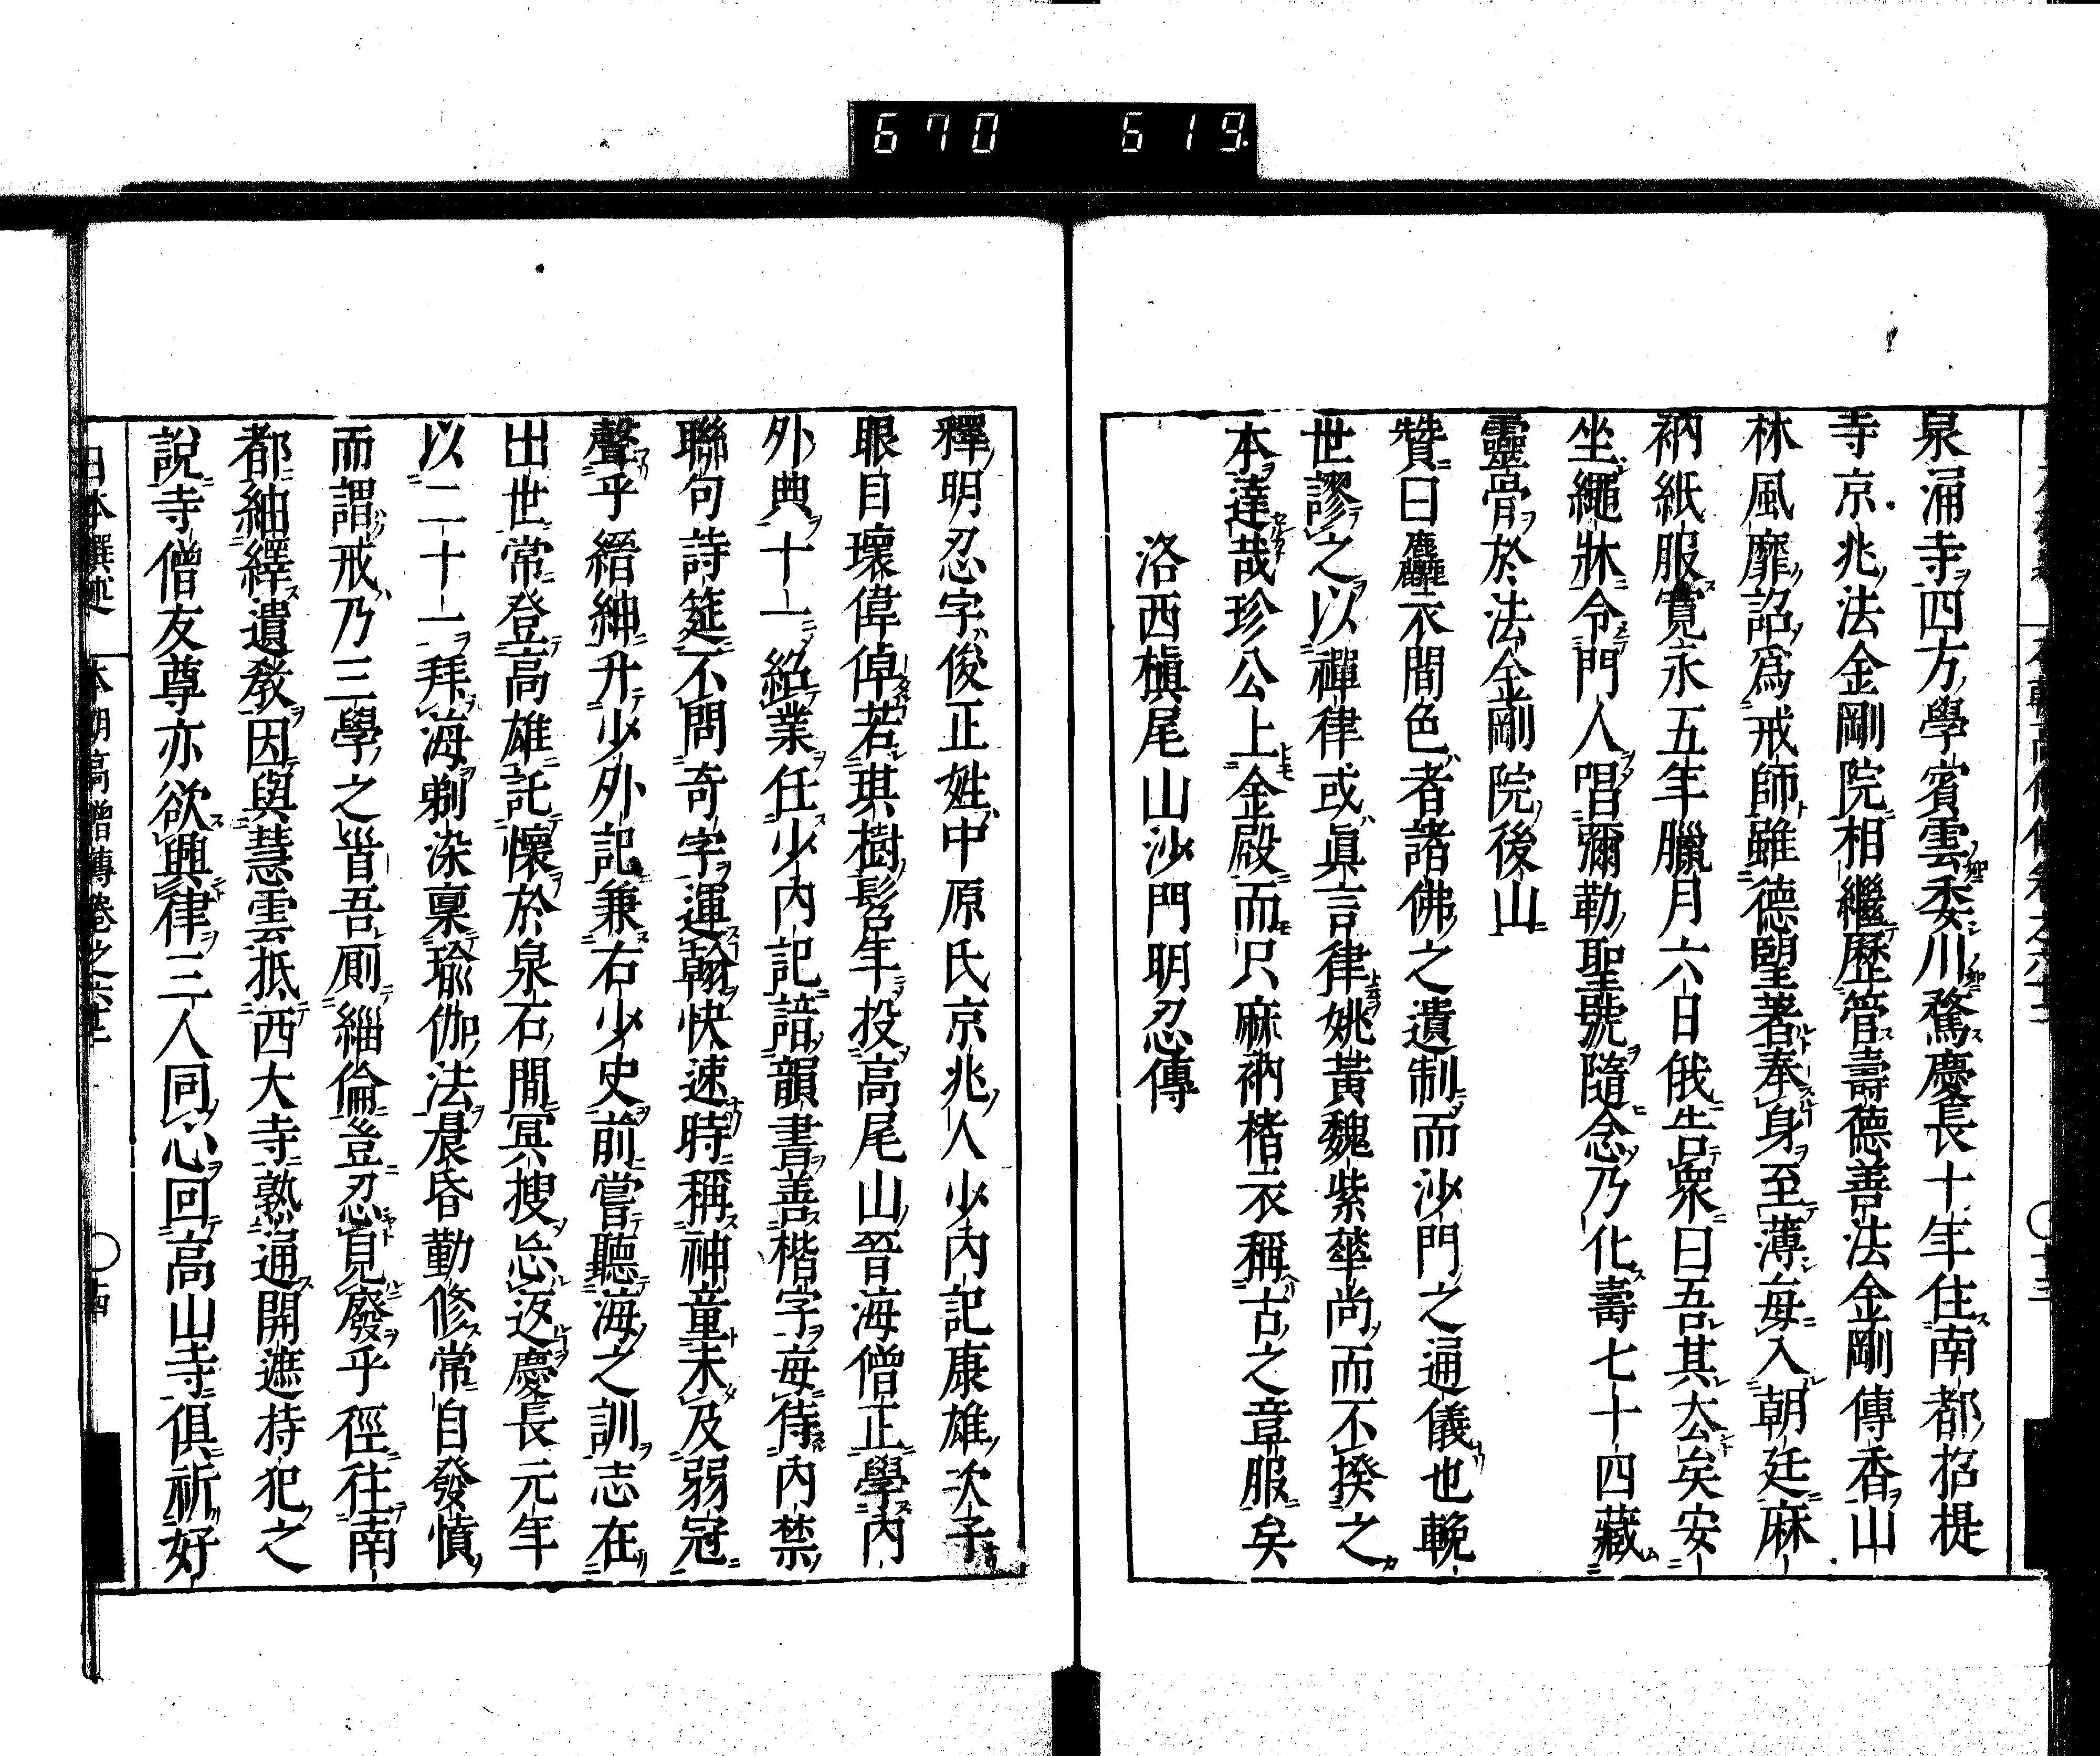 670 619
泉涌寺四方學賓雲委川騖慶長十年住南都招提
寺京兆法金剛院相繼歷管壽德善法金剛傳香山
林風靡詔爲戒師雖德望著奉身至薄每入朝廷麻
衲紙服寬永五年臘月六日俄告衆曰吾其大矣安
坐繩牀令門人唱彌勒聖號隨念乃化壽七十四藏
靈骨於法金剛院後山
贊曰麤衣間色者諸佛之遺制而沙門之通儀也輓
世謬之以禪律或眞言律姚黃魏紫華尚而不揆之
本達哉珍公上金殿而只麻衲楮衣稱古之章服矣
洛西槇尾山沙門明忍傳
釋明忍字俊正姓中原氏京兆人少內記康雄次子
眼目瓌偉倬若琪樹髫年投高尾山晉海僧正學內
外典十一紹業任少內記諳韻書善楷字每待內禁
聯句詩筵不問奇字運翰快速時稱神童未及弱冠
聲乎縉紳升少外記兼右少史前嘗聽海之訓志在
出世常登高雄託懷於泉石間冥搜忘返慶長元年
以二十一拜海剃染稟瑜伽法晨昏勤修常自發憤
而謂戒乃三學之首吾厠緇倫豈忍見廢乎徑往南
都紬繹遺教因與慧雲抵西大寺熟通開遮持犯之
說寺僧友尊亦欲興律三人同心回高山寺俱祈好
日本撰述 本朝高僧傳卷之六十二 ○十四